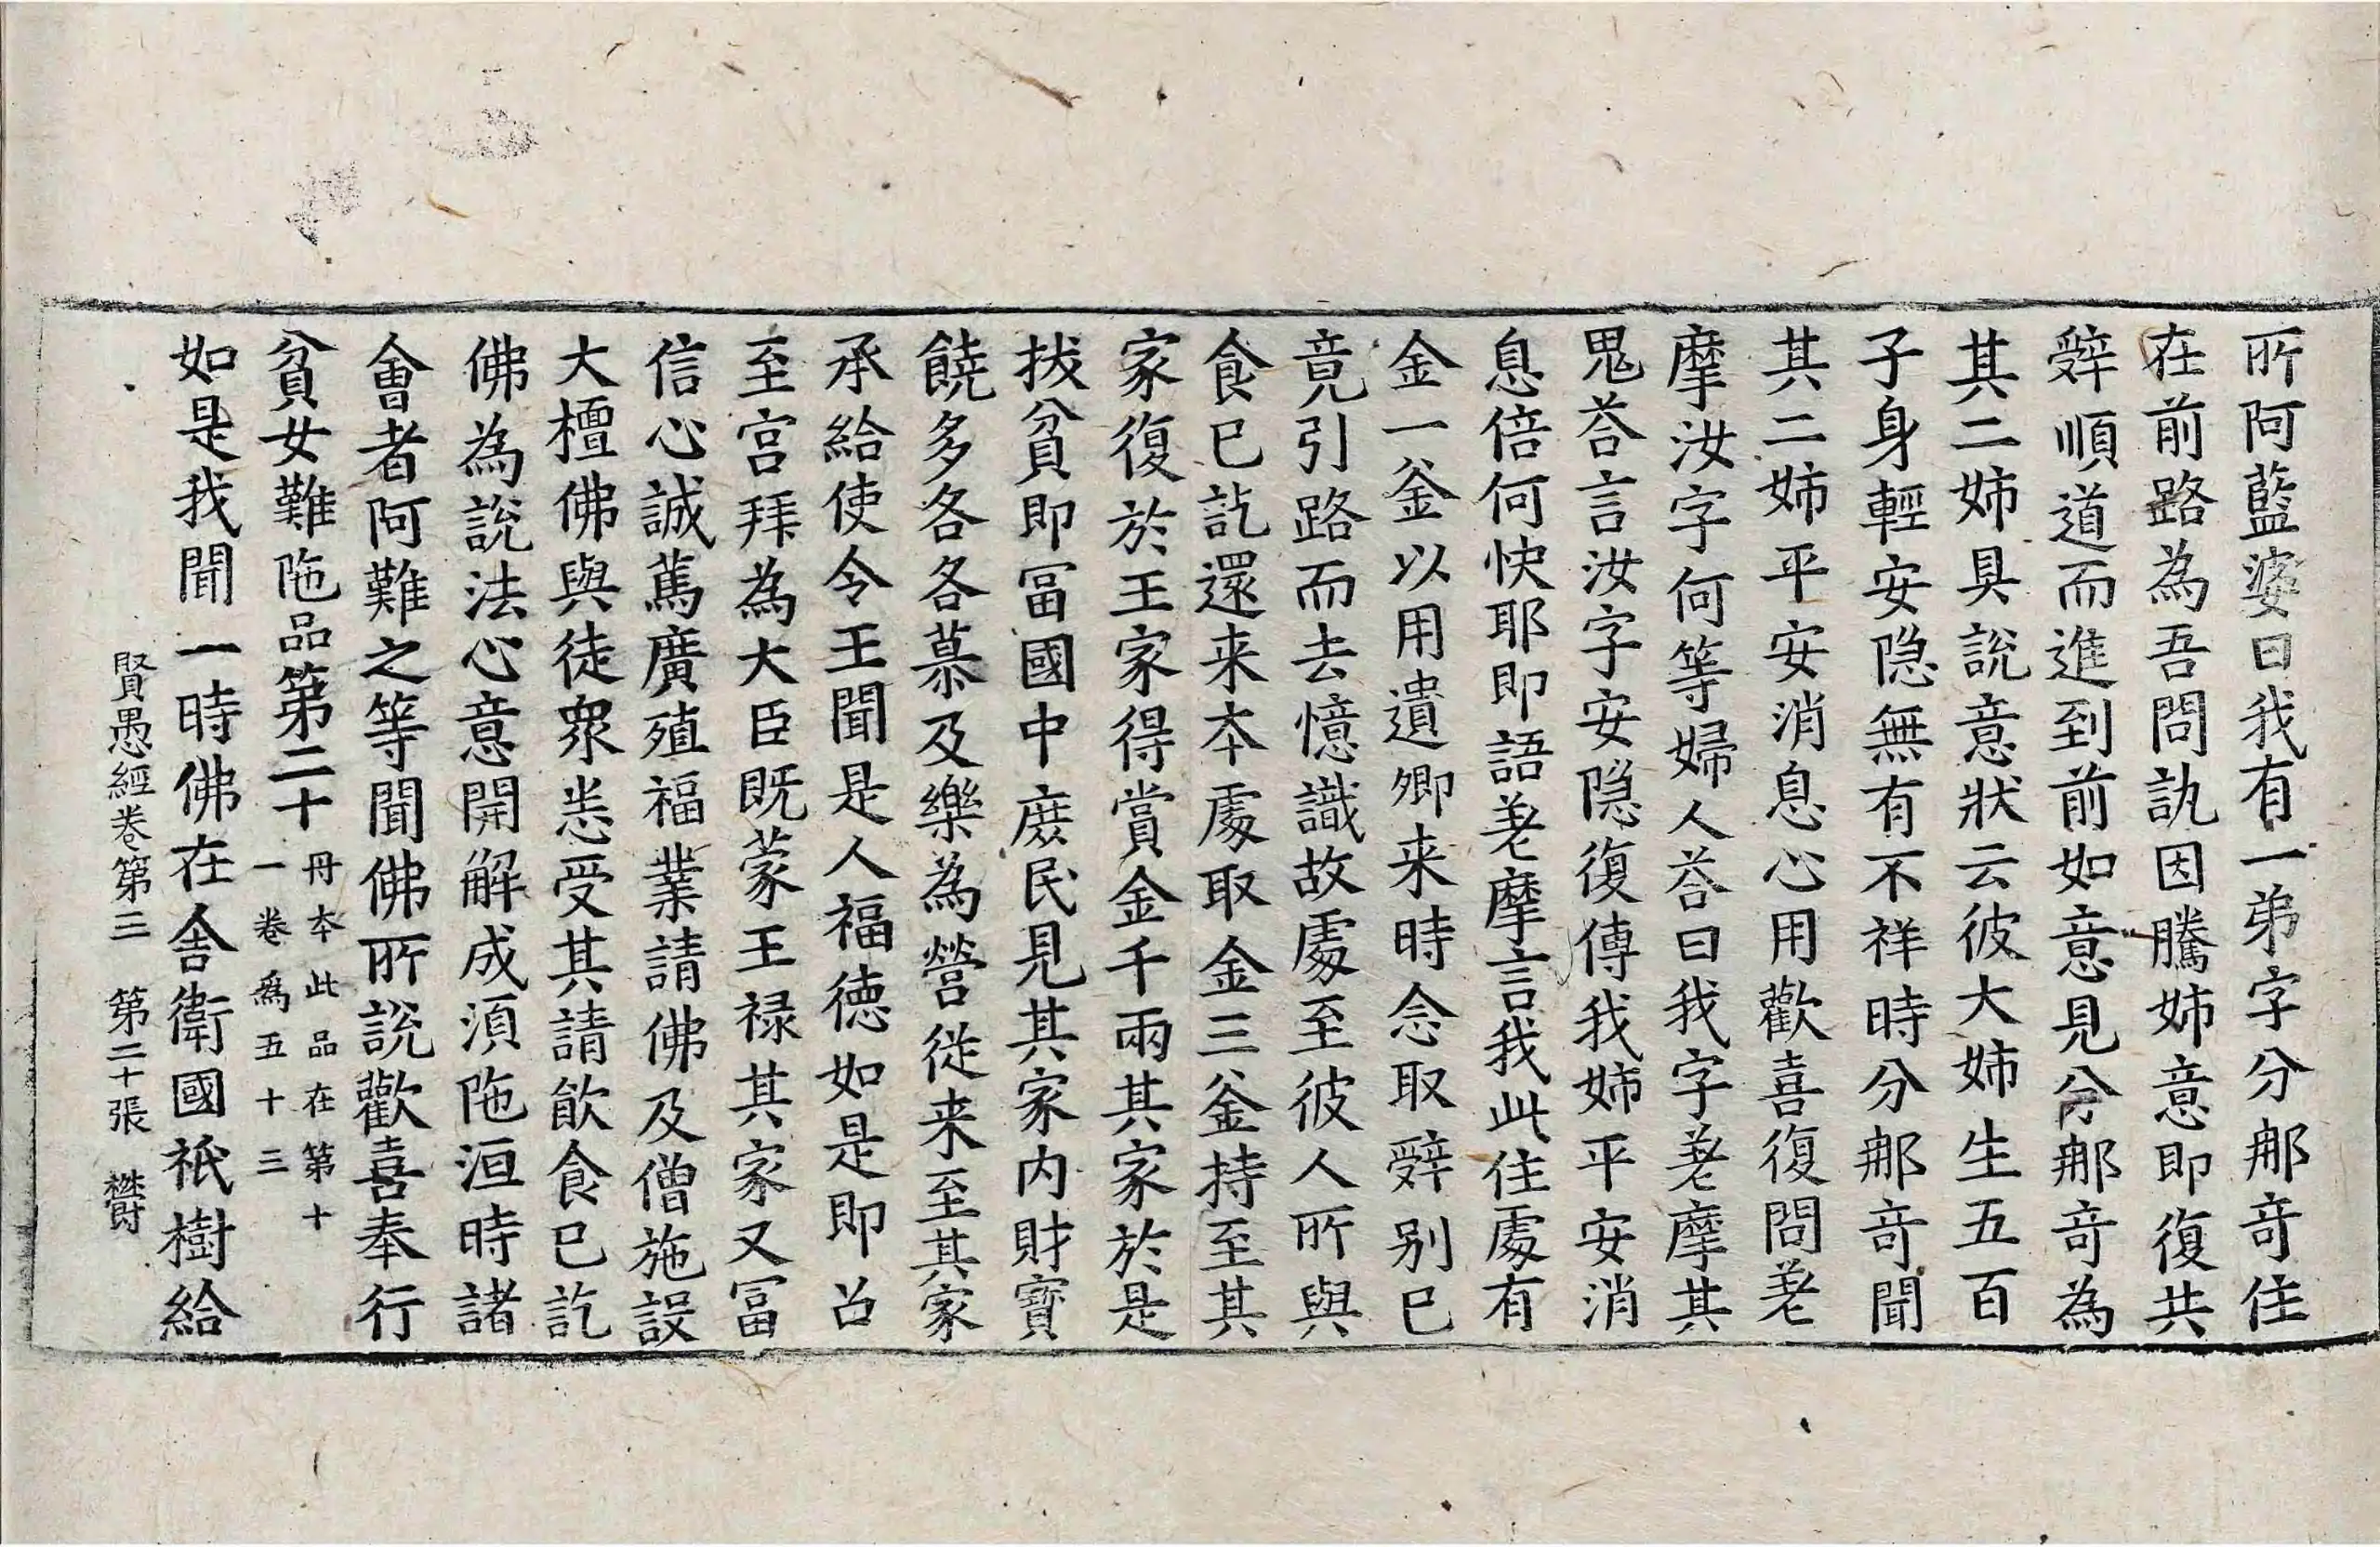 所阿藍婆曰我有一弟字分那竒住
在前路為吾問訊因騰姉意即復共
辤順道而進到前如意見分那竒為
其二姉具說意狀云彼大姉生五百
子身輕安隐無有不祥時分那竒聞
其二姉平安消息心用歡喜復問㳣
摩汝字何等婦人荅曰我字㳣摩其
鬼荅言汝字安隐復傳我姉平安消
息倍何快耶即語㳣摩言我此住處有
金一釜以用遺卿来時念取辤别已
竟引路而去憶識故處至彼人所與
食已訖還来本處取金三釜持至其
家復於王家得賞金千兩其家於是
拔貧即冨國中庶民見其家内財寶
饒多各各慕及樂為營從来至其家
承給使令王聞是人福德如是即召
至宫拜為大臣既蒙王禄其家又冨
信心誠篤廣殖福業請佛及僧施設
大檀佛與徒衆悉受其請飲食已訖
佛為說法心意開解成湏陁洹時諸
會者阿難之等聞佛所說歡喜奉行
貧女難陁品第二十 丹本此品在第十
一卷爲五十三
如是我聞一時佛在舍衛國祇樹給
賢愚經卷第三 第二十張 欝